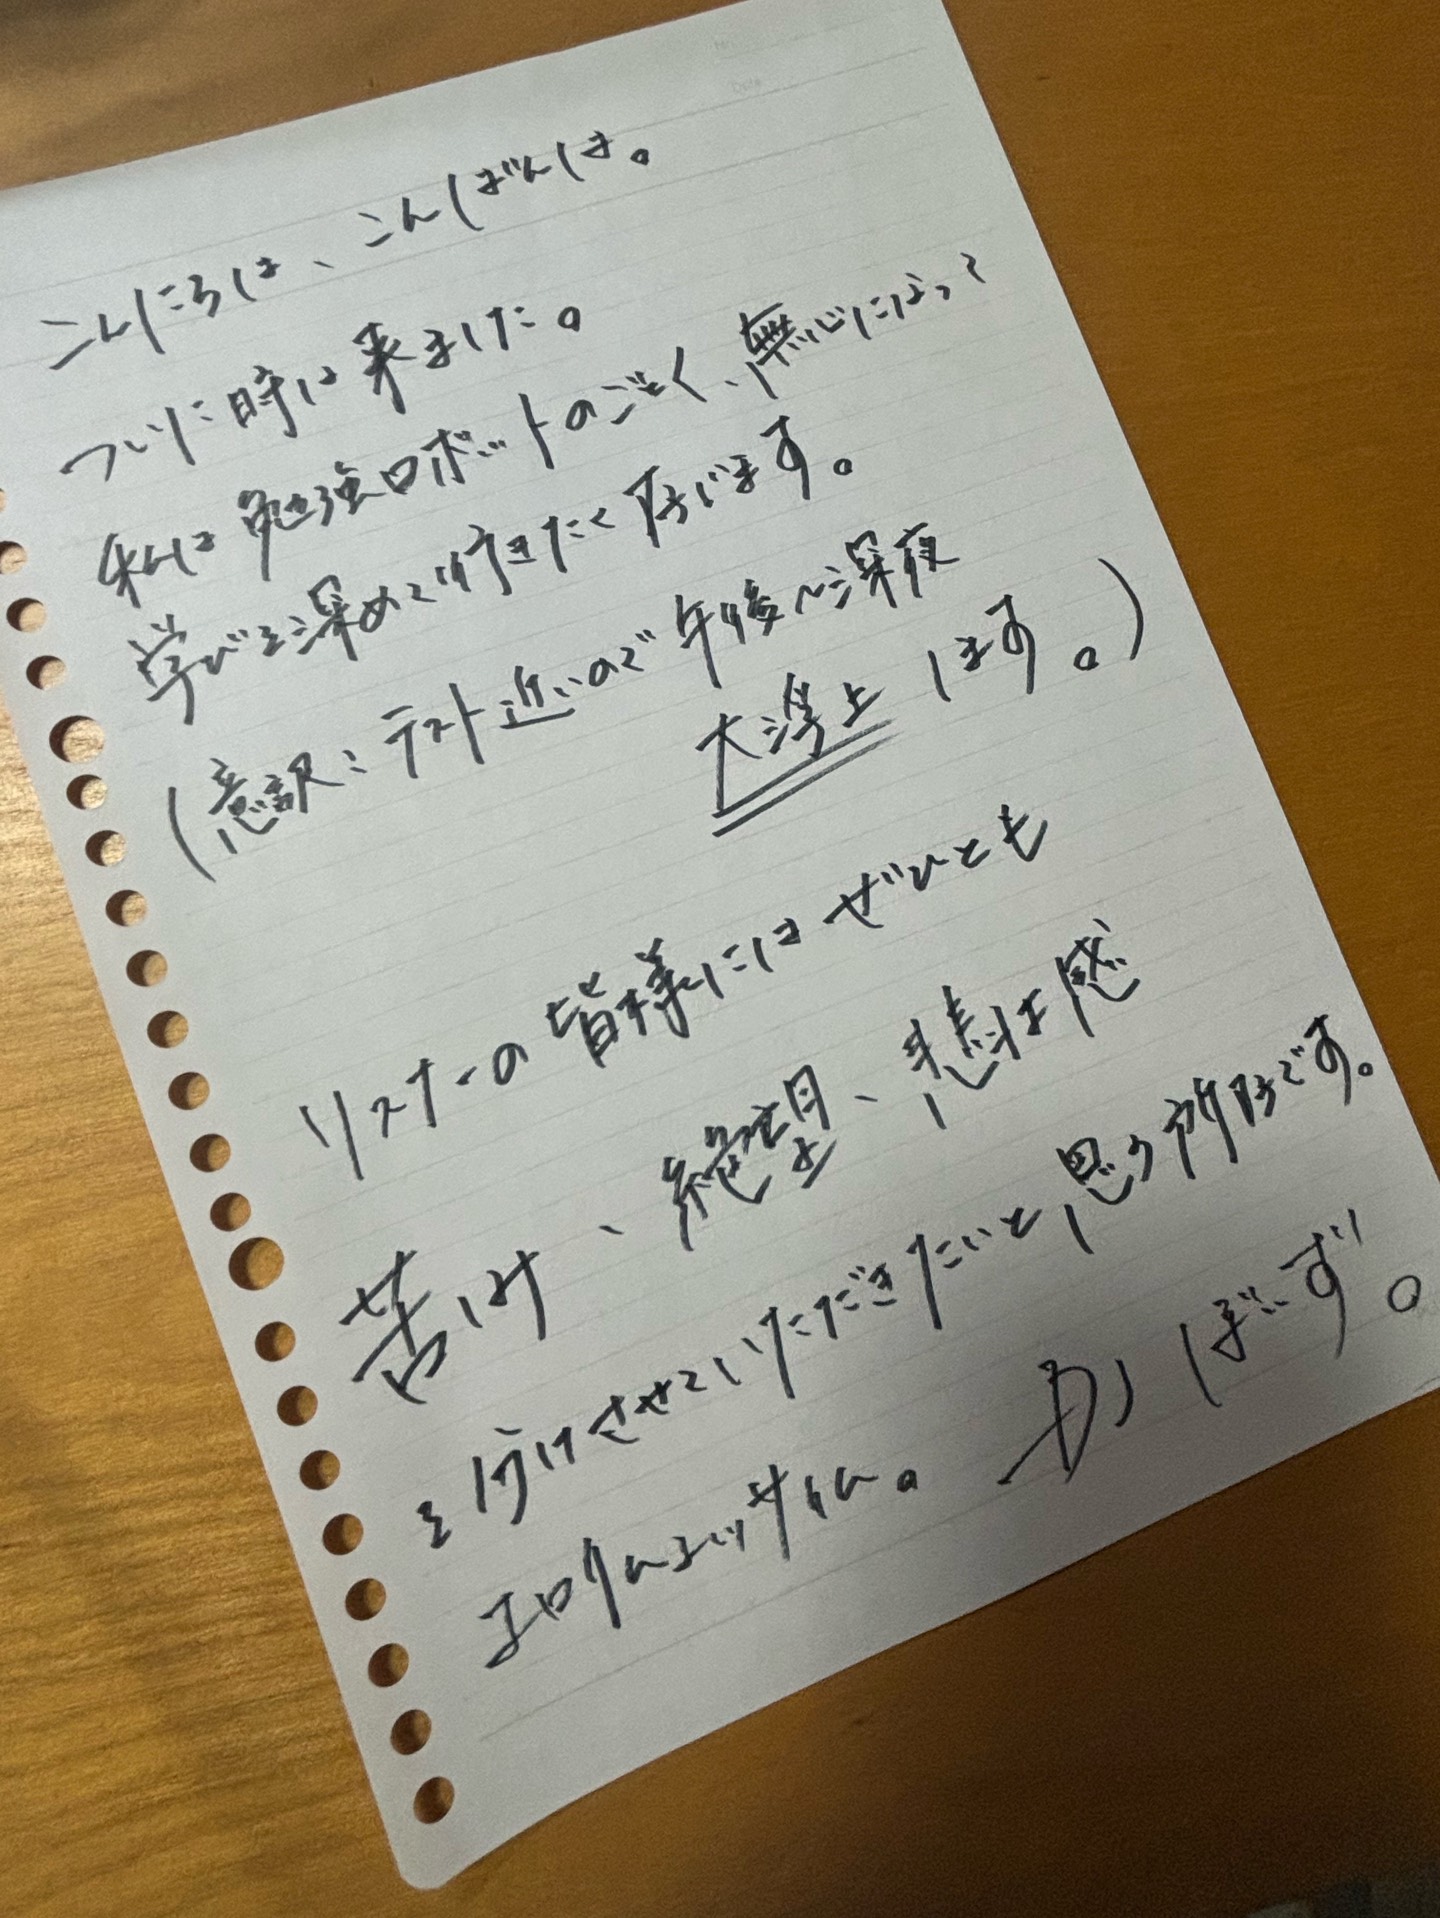 こんにちは、こんばんは。
ついに時は来ました。
私は勉強ロボットのごとく、無心になって
学びを深めて行きたく存じます。
(意訳:テスト近いので午後〜深夜
大浮上します。)
リスナーの皆様にはぜひとも
苦しみ、絶望、悲壮感
を分けさせていただきたいと思う所存です。
エロクムエッサイム。
かしぼ